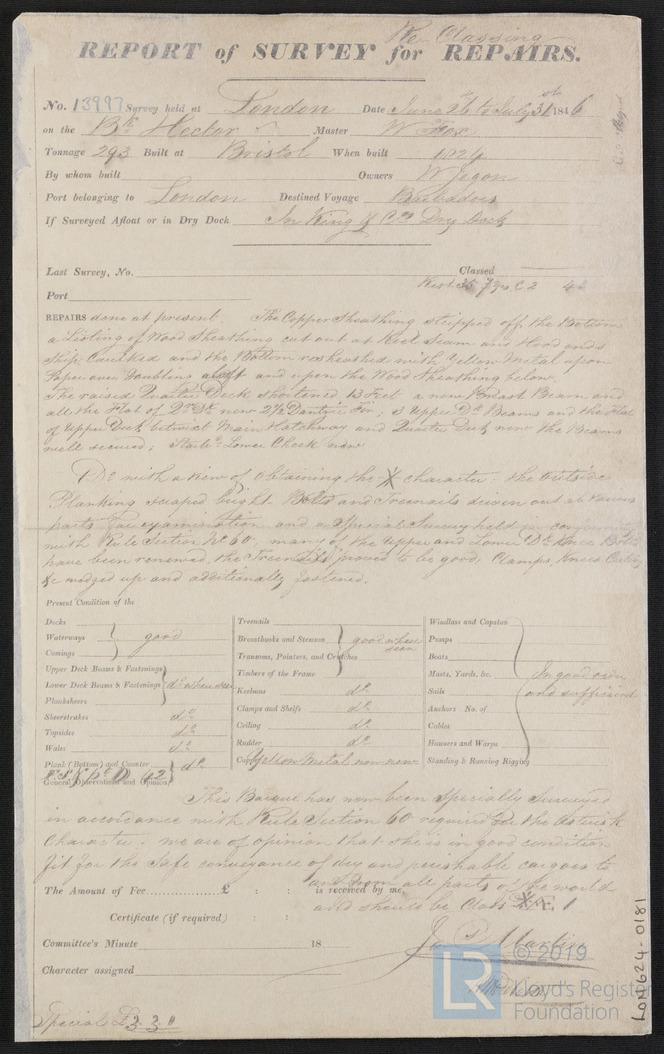 Re Classing
REPORT of SURVEY for REPAIRS.
No. 13997 Survey held at London Date June 26th to July 31st 1846
on the Bk Hector Master W Fox
Tonnage 293 Built at Bristol When built
By whom built Owners
Port belonging to London Destined Voyage Barbadoes
If Surveyed Afloat or in Dry Dock In King & Cos Dry Dock
Last Survey, No. Classed
Port
REPAIRS done at present. The Copper Sheathing stripped off the Bottom
a Listing of Wood Sheathing cut out at Keel Seam and Hood ends
Ship Caulked and the Bottom resheathed with Yellow Metal upon
Paper over Doubling and upon the Wood Sheathing below
The raised Quarter Deck shortened 13 Feet a new Breast Beam and
all the Flat of Qr Dk new 2½ Dantzic Fir; 3 Upper Dk Beams and the Flat
of Upper Deck betwixt Main Hatchway and Quarter Deck new the Beams
well secured; Lower Cheek new
Do with a view of obtaining the Ж character: the outside
Planking scraped bright Bolts and Treenails driven out at various
parts for examination and a Special Survey held in conformity
with Rule Section No 60; many of the Upper and Lower Dk Knee Bolts
have been renewed, the Treenails proved to be good, Clamps, Knees Ceiling
&c wedged up and additionally fastened.
Present Condition of the
Decks
Waterways good
Comings
Upper Deck Beams & Fastenings
Lower Deck Beams & Fastenings do where seen
Planksheers
Sheerstrakes do
Topsides do
Wales do
Plank (Bottom) and Counter do
Treenails
Breasthooks and Stemson good where seen
Transoms, Pointers, and Crutches
Timbers of the Frame
Keelsons do
Clamps and Shelfs do
Ceiling do
Rudder do
Copper Yellow Metal now new
Windlass and Capstan
Pumps
Boats
Masts, Yards, &c. In good order
Sails and sufficient
Anchors No. of
Cables
Hawsers and Warps
Standing & Running Rigging
General Observations and Opinion,
This Barque has now been Specially Surveyed
in accordance with Rule Section 60 required for the Asterisk
Character. we are of opinion that she is in good condition
fit for the safe conveyance of dry and perishable cargoes to
and from all parts of the world
The Amount of Fee............... £ : : is received by me,
and should be Class Ж Æ 1
Certificate (if required) : :
Committee's Minute 18
Character assigned
Martin
Special £3.3.0
LON624-0181
LR
© 2019
Lloyd's Register
Foundation